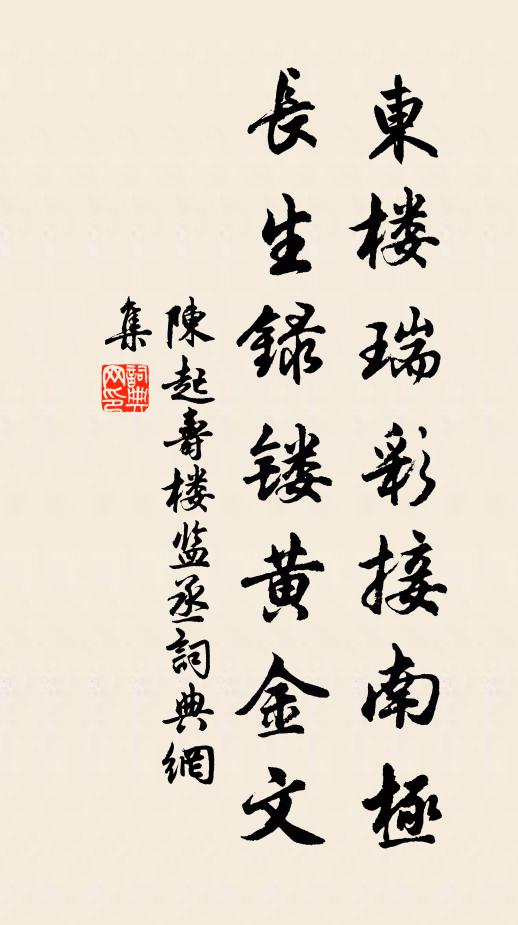 東楼瑞彩接南極
長生録镂黄金文
陳起壽楼监丞詞典網
集
詞典网印